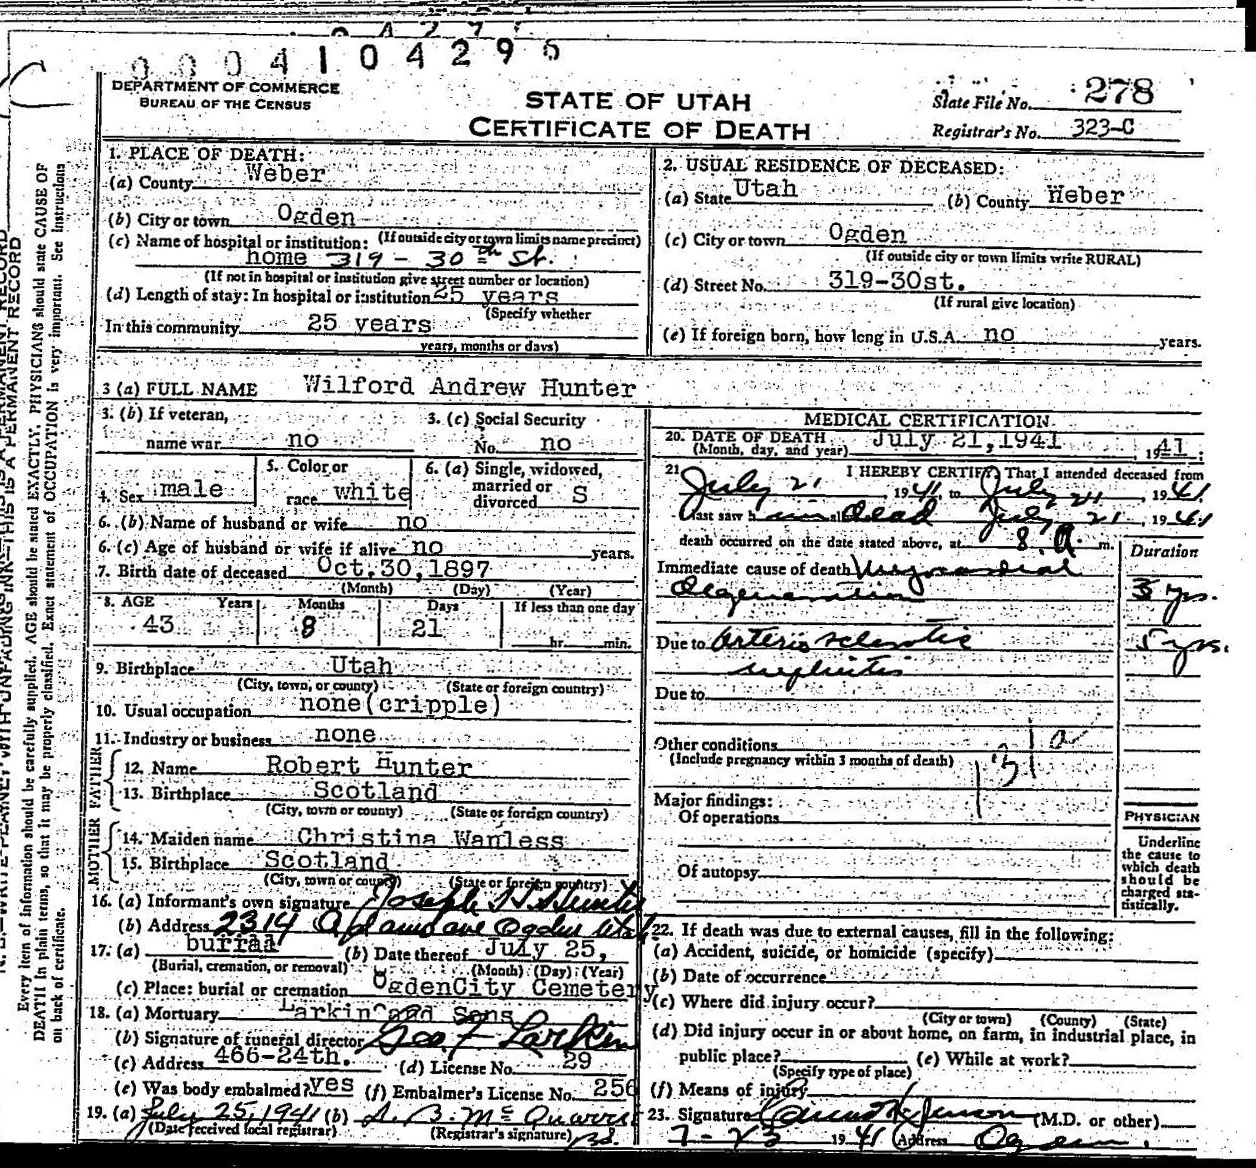 0004104296
DEPARTMENT OF COMMERCE
BUREAU OF THE CENSUS
STATE OF UTAH
CERTIFICATE OF DEATH
State File No. 278
Registrar's No. 323-C
1. PLACE OF DEATH:
(a) County Weber
(b) City or town Ogden
(If outside city or town limits name precinct)
(c) Name of hospital or institution:
home 319 - 30th St.
(If not in hospital or institution give street number or location)
(d) Length of stay: In hospital or institution 25 years
(Specify whether
In this community 25 years
years, months or days)
2. USUAL RESIDENCE OF DECEASED:
(a) State Utah (b) County Weber
(c) City or town Ogden
(If outside city or town limits write RURAL)
(d) Street No. 319-30st.
(If rural give location)
(e) If foreign born, how long in U.S.A. no years.
3 (a) FULL NAME Wilford Andrew Hunter
3. (b) If veteran,
name war no
3. (c) Social Security
No. no
4. Sex male
5. Color or
race white
6. (a) Single, widowed,
married or
divorced S
6. (b) Name of husband or wife no
6. (c) Age of husband or wife if alive no years.
7. Birth date of deceased Oct. 30, 1897
(Month) (Day) (Year)
8. AGE Years Months Days If less than one day
43 8 21 hr. min.
9. Birthplace Utah
(City, town, or county) (State or foreign country)
10. Usual occupation none(cripple)
11. Industry or business none
FATHER
12. Name Robert Hunter
13. Birthplace Scotland
(City, town or county) (State or foreign country)
MOTHER
14. Maiden name Christina Wanless
15. Birthplace Scotland
(City, town or county) (State or foreign country)
16. (a) Informant's own signature Joseph H Hunter
(b) Address 2314 ave Ogden Utah
17. (a) burial (b) Date thereof July 25,
(Burial, cremation, or removal) (Month) (Day) (Year)
(c) Place: burial or cremation OgdenCity Cemetery
18. (a) Mortuary Larkin and Sons
(b) Signature of funeral director Geo F Larkin
(c) Address 466-24th. (d) License No. 29
(e) Was body embalmed? yes (f) Embalmer's License No. 256
19. (a) July 25, 1941 (b)
(Date received local registrar) (Registrar's signature)
MEDICAL CERTIFICATION
20. DATE OF DEATH July 21, 1941 1941;
(Month, day, and year)
21. I HEREBY CERTIFY That I attended deceased from
July 21, 1941, to July 21, 1941
last saw him dead July 21, 1941
death occurred on the date stated above, at 8 A. m.
Duration
Immediate cause of death Myocardial
degeneration 3 yrs.
Due to Arterio sclerotic 5 yrs.
nephritis
Due to
131a
Other conditions
(Include pregnancy within 3 months of death)
Major findings:
Of operations
Of autopsy
PHYSICIAN
Underline
the cause to
which death
should be
charged sta-
tistically.
22. If death was due to external causes, fill in the following:
(a) Accident, suicide, or homicide (specify)
(b) Date of occurrence
(c) Where did injury occur?
(City or town) (County) (State)
(d) Did injury occur in or about home, on farm, in industrial place, in
public place? (e) While at work?
(Specify type of place)
(f) Means of injury
23. Signature Jenson (M.D. or other)
7-23 1941 Address Ogden.
Every item of information should be carefully supplied. AGE should be stated EXACTLY. PHYSICIANS should state CAUSE OF
DEATH in plain terms, so that it may be properly classified. Exact statement of OCCUPATION is very important. See instructions
on back of certificate.
THIS IS A PERMANENT RECORD